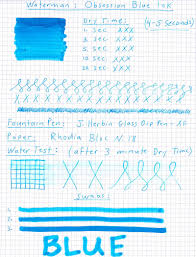 Waterman: Obsession Blue Ink
Dry Times: (4-5 seconds)
4 sec XXX
5 sec XXX
8 sec XXX
10 sec XXX
20 sec XXX
Fountain Pen: J. Herbin Glass Dip Pen - XF
Paper: Rhodia Bloc N 18
Water Test: (after 3 minute Dry Time)
Swabs:
1.
2.
3.
BLUE